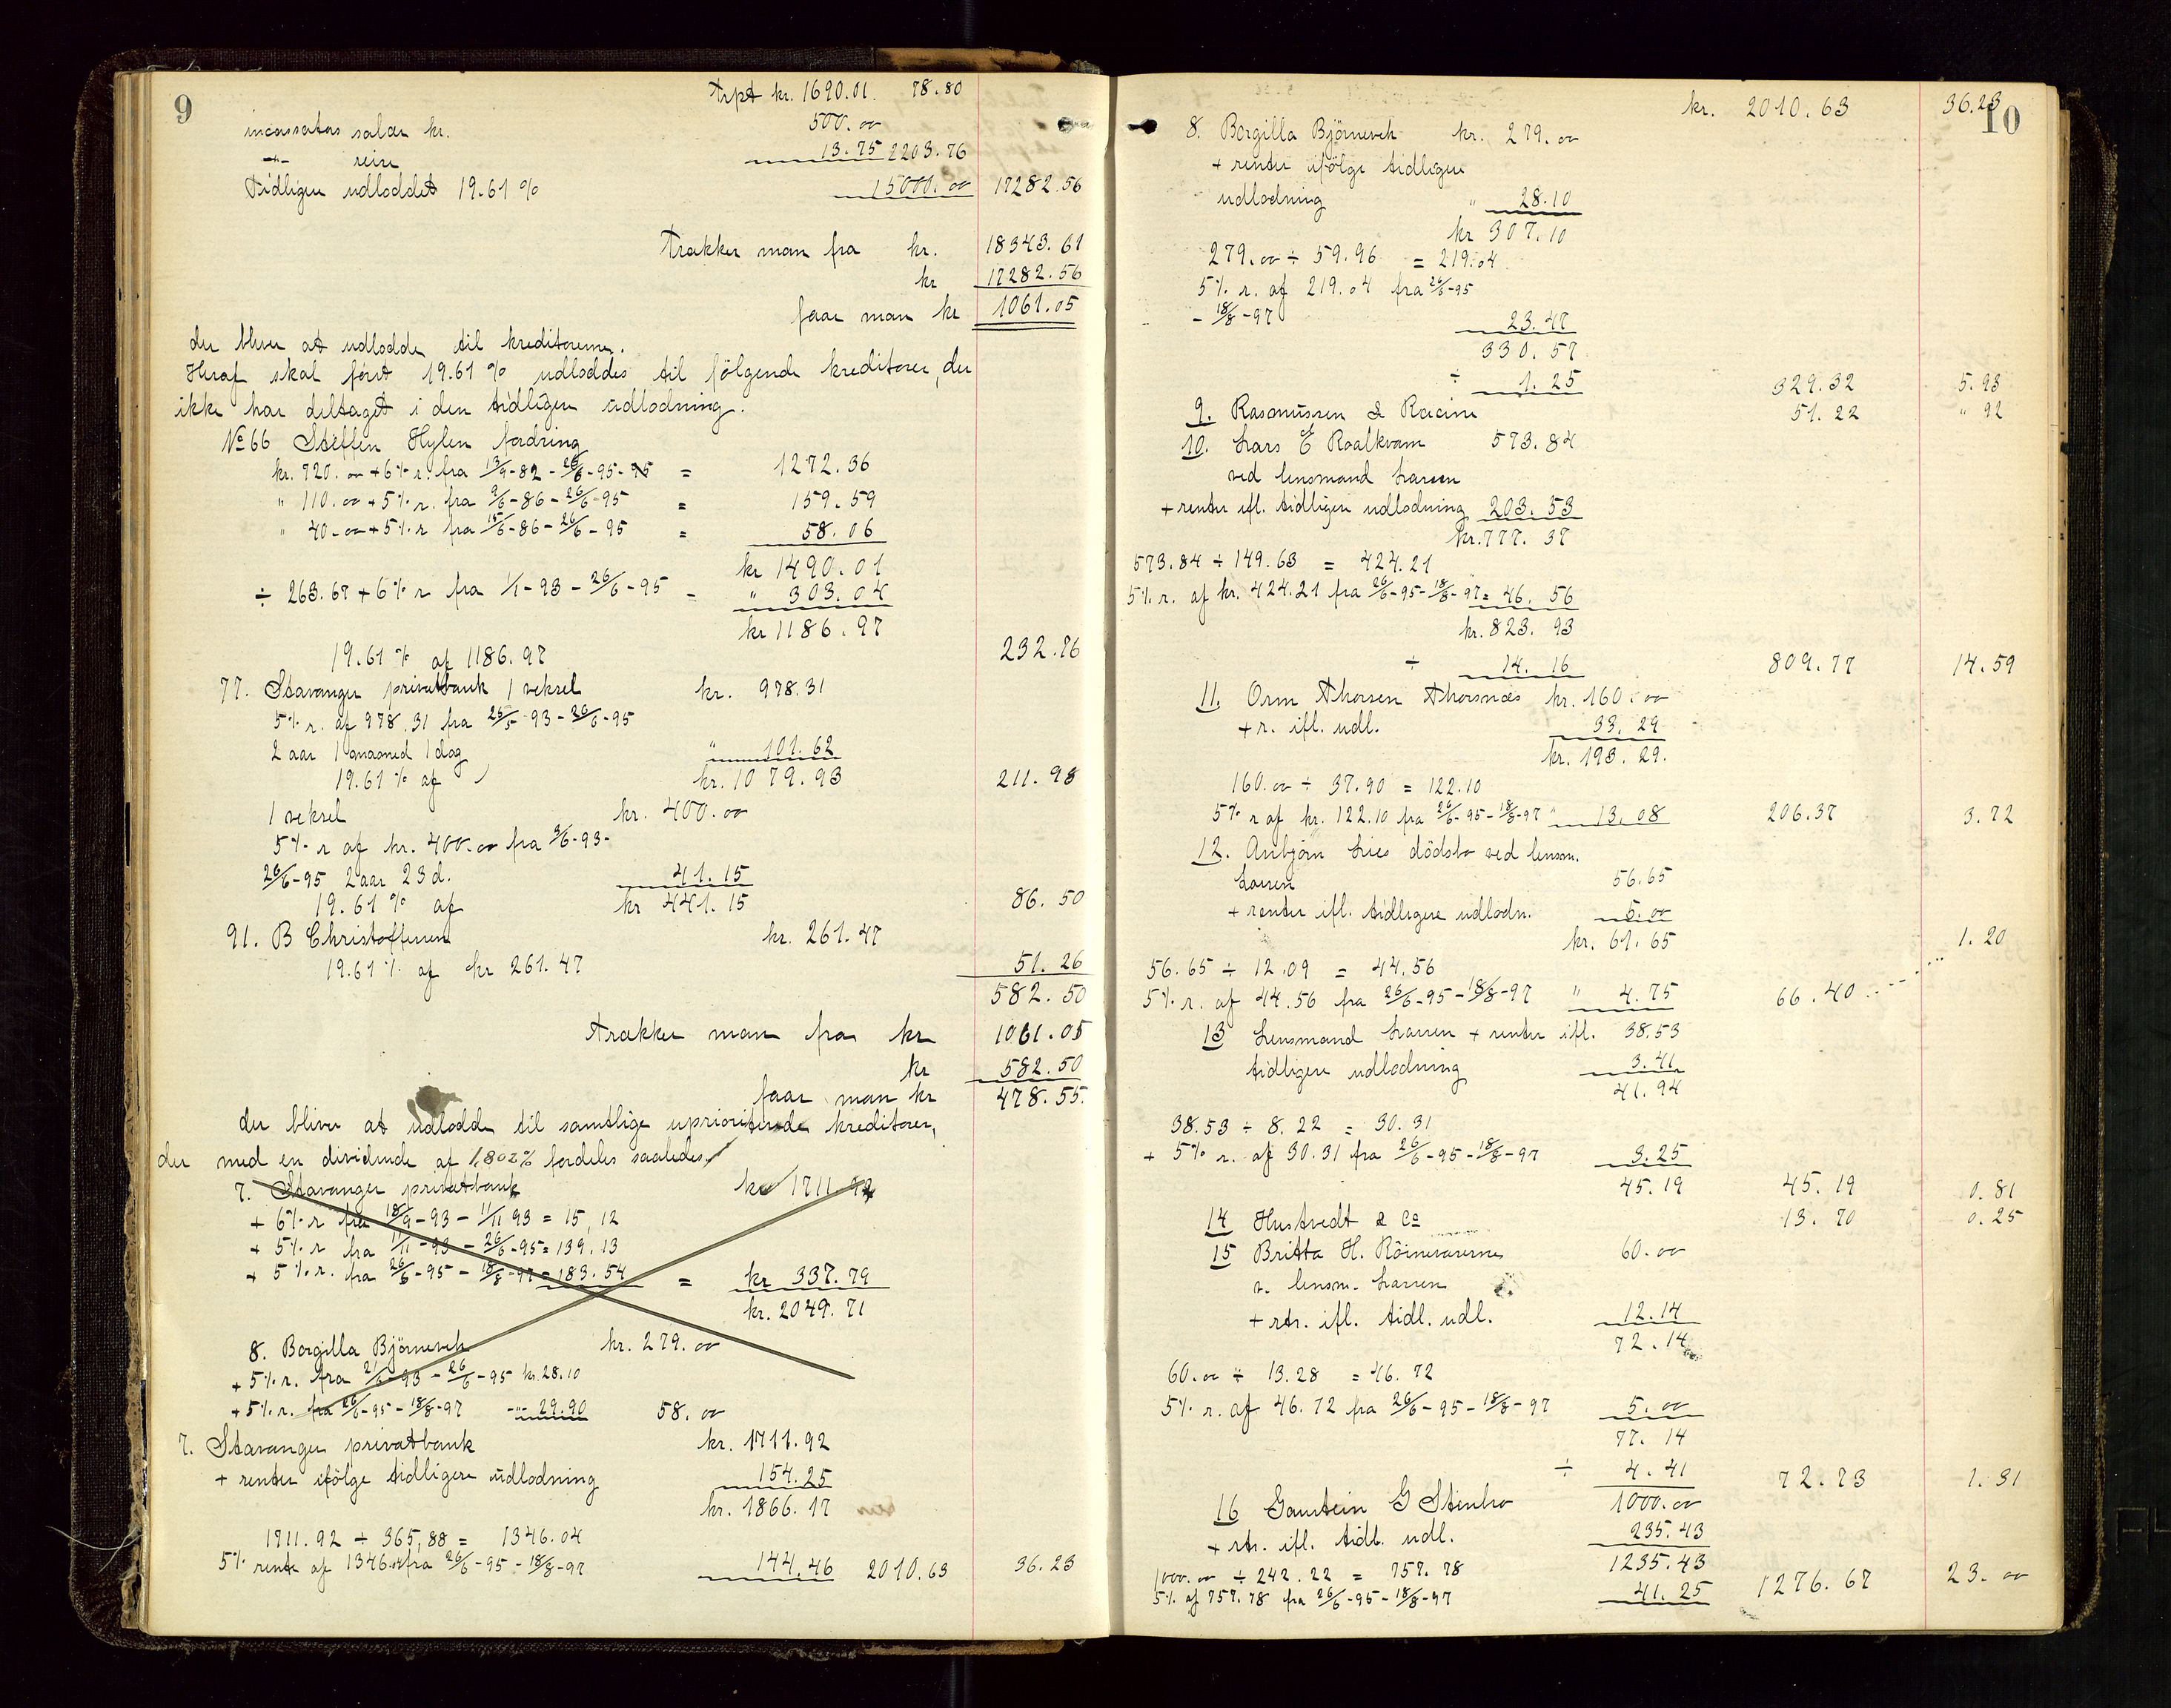 9
trpt kr. 1690.01. 78.80
incassators salær kr. 500.00
-"- reise 13.75 2203.76
Tidligere udloddet 19.61 % 15000.00 17282.56
Trækker man fra kr. 18343.61
kr 17282.56
faar man kr 1061.05
der bliver at udlodde til kreditorerne.
Heraf skal først 19.61 % udloddes til følgende kreditorer, der
ikke har deltaget i den tidligere udlodning.
No 66 Steffen Hylen fordring
kr. 720.00 + 6% r. fra 13/9-82 - 26/6-95 = 1272.36
" 110.00 + 5% r. fra 9/6-86 - 26/6-95 = 159.59
" 40.00 + 5% r fra 15/6-86 - 26/6-95 = 58.06
kr 1490.01
÷ 263.67 + 6% r fra 1/1-93 - 26/6-95 - " 303.04
kr 1186.97
19.61 % af 1186.97 232.76
77. Stavanger privatbank 1 veksel kr. 978.31
5% r. af 978.31 fra 25/5-93 - 26/6-95
2 aar 1 maaned 1 dag " 101.62
19.61 % af kr. 1079.93 211.98
1 veksel kr. 400.00
5% r af kr. 400.00 fra 3/6-93-
26/6-95 2 aar 23 d. 41.15
19.61 % af kr 441.15 86.50
91. B Christoffersen kr. 261.47
19.61 % af kr 261.47 51.26
582.50
trækker man fra kr 1061.05
kr 582.50
faar man kr 478.55.
der bliver at udlodde til samtlige uprioriterede kreditorer,
der med en dividende af 1,802 % fordeles saaledes:
7. Stavanger privatbank kr 1711.92
+ 6% r fra 18/9-93 - 11/11 93 = 15,12
+ 5% r fra 11/11-93 - 26/6-95 = 139.13
+ 5% r. fra 26/6-95 - 18/8-97 = 183.54 = kr 337.79
kr. 2049.71
8. Borgilla Björnevek kr. 279.00
+ 5% r. fra 21/6 93 - 26/6-95 kr. 28.10
+ 5% r. fra 26/6-95 - 18/8-97 -"- 29.90 58.00
7. Stavanger privatbank kr. 1711.92
+ renter ifölge tidligere udlodning 154.25
kr. 1866.17
1711.92 ÷ 365,88 = 1346.04
5% rente af 1346.04 fra 26/6-95 - 18/8-97 144.46 2010.63 36.23
10
kr. 2010.63 36.23
8. Borgilla Björnevek kr. 279.00
+ renter ifölge tidligere
udlodning " 28.10
kr 307.10
279.00 ÷ 59.96 = 219.04
5% r. af 219.04 fra 26/6-95
- 18/8-97 23.47
330.57
÷ 1.25 329.32 5.93
9. Rasmussen & Racine 51.22 " 92
10. Lars E Roalkvam 573.84
ved lensmand Larsen
+ renter ifl. tidligere udlodning 203.53
kr. 777.37
573.84 ÷ 149.63 = 424.21
5% r. af kr. 424.21 fra 26/6-95 - 18/8-97 = 46.56
kr. 823.93
÷ 14.16 809.77 14.59
11. Orm Thorsen Thorsnæs kr. 160.00
+ r. ifl. udl. 33.29
kr. 193.29.
160.00 ÷ 37.90 = 122.10
5% r af kr. 122.10 fra 26/6-95 - 18/8-97 " 13.08 206.37 3.72
12. Anbjörn Lies dödsbo ved lensm.
Larsen 56.65
+ renter ifl. tidligere udlodn. 5.00
kr. 61.65 1.20
56.65 ÷ 12.09 = 44.56
5% r. af 44.56 fra 26/6-95 - 18/8-97 " 4.75 66.40
13 Lensmand Larsen + renter ifl. 38.53
tidligere udlodning 3.41
41.94
38.53 ÷ 8.22 = 30.31
+ 5% r. af 30.31 fra 26/6-95 - 18/8-97 3.25
45.19 45.19 0.81
14 Hustvedt & Co 13.70 0.25
15 Britta H. Röinevarernes 60.00
v. lensm. Larsen
+ rtr. ifl. tidl. udl. 12.14
72.14
60.00 ÷ 13.28 = 46.72
5% r. af 46.72 fra 26/6-95 - 18/8-97 5.00
77.14
÷ 4.41 72.73 1.31
16 Gaustein G Stenbro 1000.00
+ rtr. ifl. tidl. udl. 235.43
1235.43
1000.00 ÷ 242.22 = 757.78
5% af 757.78 fra 26/6-95 - 18/8-97 41.25 1276.67 23.00